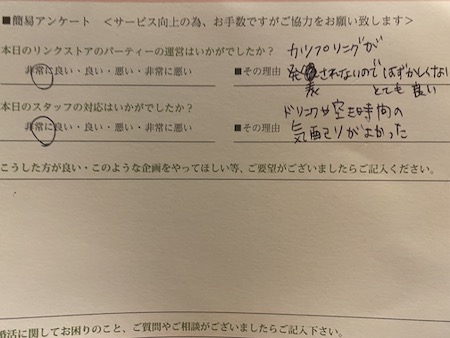 ■簡易アンケート <サービス向上の為、お手数ですがご協力をお願い致します>
本日のリンクストアのパーティーの運営はいかがでしたか?
カップリングが
非常に良い・良い・悪い・非常に悪い
■その理由
発表されないので はずかしくない
とても良い
本日のスタッフの対応はいかがでしたか?
ドリンクや空き時間の
非常に良い・良い・悪い・非常に悪い
■その理由
気配りがよかった
こうした方が良い・このような企画をやってほしい等、ご要望がございましたらご記入ください。
婚活に関してお困りのこと、ご質問やご相談がございましたらご記入下さい。